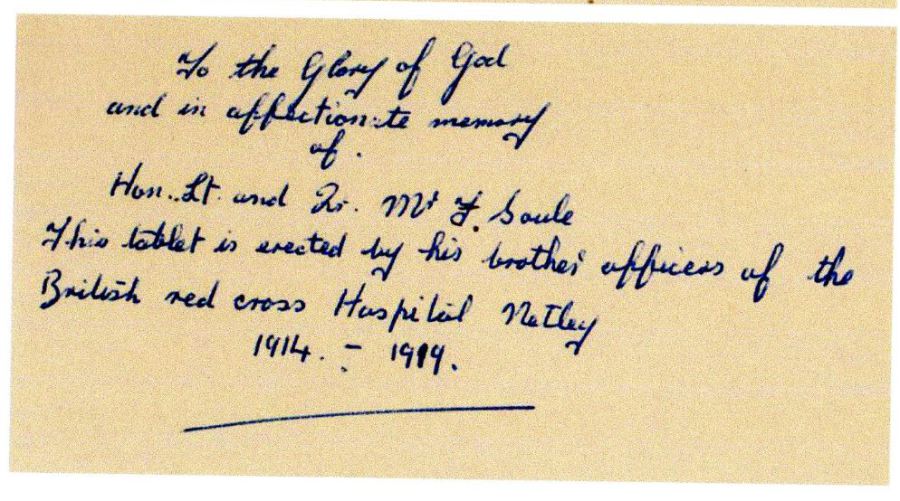 To the Glory of God
and in affectionate memory
of.
Hon. Lt. and Qr. Mr F. Soule
This tablet is erected by his brother officers of the
British red cross Hospital Netley
1914. - 1919.